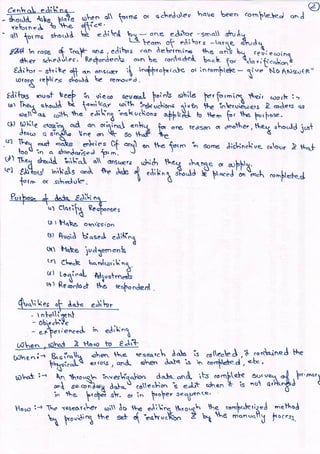 ②
Central editing -
- should take place when all forms or scheduler have been completed and
returned to the office.
- all forms should be edited by — one editor - small study
team of editors - large study
In case of inapt ans, editors can determine the ans by reviewing
other schedules. Respondents can be contacted back for clarification
Editor - strike off an answer if inappropriate or incomplete - give 'NO ANSWER'
Wrong replies should removed.
Editors must keep in view several points while performing their work :-
(a) They should be familiar with instructions given to the interviewers & coders as
well as with the editing instructions applied to them for the purpose.
(b) While crossing out an original entry for one reason or another, they should just
draw a single line on it so that the
(c) They must make entries (if any) on the form in some distinctive colour & that
too in a standardised form.
(d) They should initial all answers which they change or supply.
(e) Editors initials and the date of editing should be placed on each completed
form or schedule.
Purpose of data Editing
(i) Clarify Responses
(ii) Make omission
(iii) Avoid biased editing
(iv) Make judgements
(v) Check handwriting
(vi) Logical Adjustments
(vii) Recontact the respondent.
Qualities of data editor
- Intelligent
- objective
- experienced in editing
When, What & How to Edit
When :- Basically when the research data is collected, it contained the
physical errors, and when data is in completed, etc.
What :- An through investigation data and its complete survey of primary
and secondary data collection is edit when it is not arranged
in the proper str. or in proper sequence.
How :- The researcher will do the editing through the computerized method
by providing the set of instruction & by the manually process.